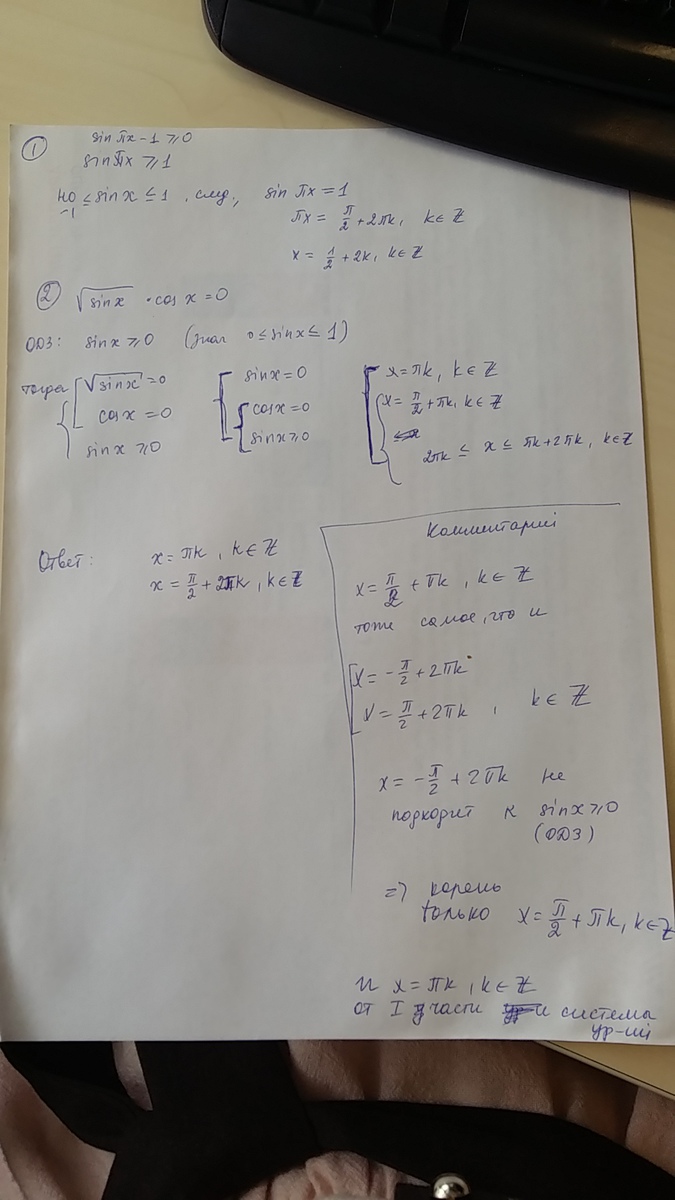 ①
sin πx - 1 ⩾ 0
sin πx ⩾ 1
но -1 ≤ sin x ≤ 1 , след., sin πx = 1
πx = π/2 + 2πk, k ∈ ℤ
x = 1/2 + 2k, k ∈ ℤ
② √sin x · cos x = 0
ОДЗ: sin x ⩾ 0 (знач 0 ≤ sin x ≤ 1)
тогда √sin x = 0
cos x = 0
sin x ⩾ 0
sin x = 0
cos x = 0
sin x ⩾ 0
x = πk, k ∈ ℤ
x = π/2 + πk, k ∈ ℤ
2πk ≤ x ≤ πk + 2πk, k ∈ ℤ
Ответ: x = πk, k ∈ ℤ
x = π/2 + 2πk, k ∈ ℤ
Комментарий
x = π/2 + πk, k ∈ ℤ
тоже самое, что и
x = -π/2 + 2πk
x = π/2 + 2πk, k ∈ ℤ
x = -π/2 + 2πk не
подходит к sin x ⩾ 0
(ОДЗ)
=> корень
только x = π/2 + πk, k ∈ ℤ
и x = πk, k ∈ ℤ
от I части системы
ур-ий